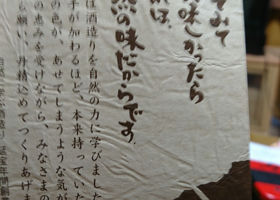 てみて
味しかったら
は、
然の味だからです。
は酒造りを自然の力に学びました
手が加わるほど、本来持っていた
の色が、あせてしまうような気が
の恵みを受けながら、みなさまの
ら願い、丹精込めてつくりあげま
自然に学ぶ酒造り